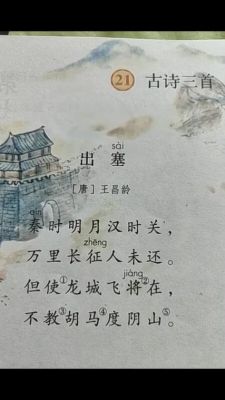 21 古诗三首
sài
出塞
[唐]王昌龄
qín
秦时明月汉时关，
万里长征人未还。
zhēng jiàng
但使①龙城飞将②在，
不教③胡马④度阴山⑤。